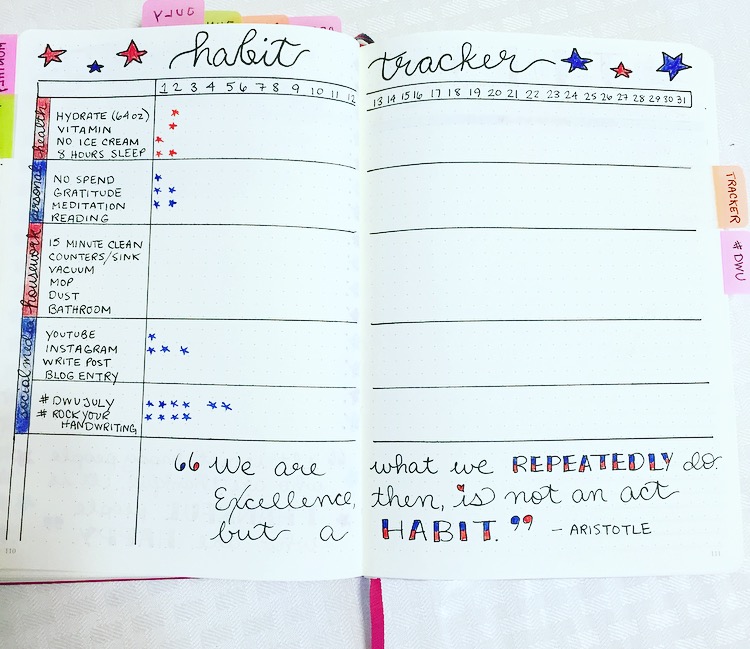 habit tracker
1 2 3 4 5 6 7 8 9 10 11 12 13 14 15 16 17 18 19 20 21 22 23 24 25 26 27 28 29 30 31
health
HYDRATE (64oz)
VITAMIN
NO ICE CREAM
8 HOURS SLEEP
personal
NO SPEND
GRATITUDE
MEDITATION
READING
housework
15 MINUTE CLEAN
COUNTERS/SINK
VACUUM
MOP
DUST
BATHROOM
social media
YOUTUBE
INSTAGRAM
WRITE POST
BLOG ENTRY
# DWUJULY
# ROCK YOUR
HANDWRITING
“ We are what we REPEATEDLY do.
Excellence, then, is not an act
but a HABIT. ” - ARISTOTLE
110
111
TRACKER
# DWU